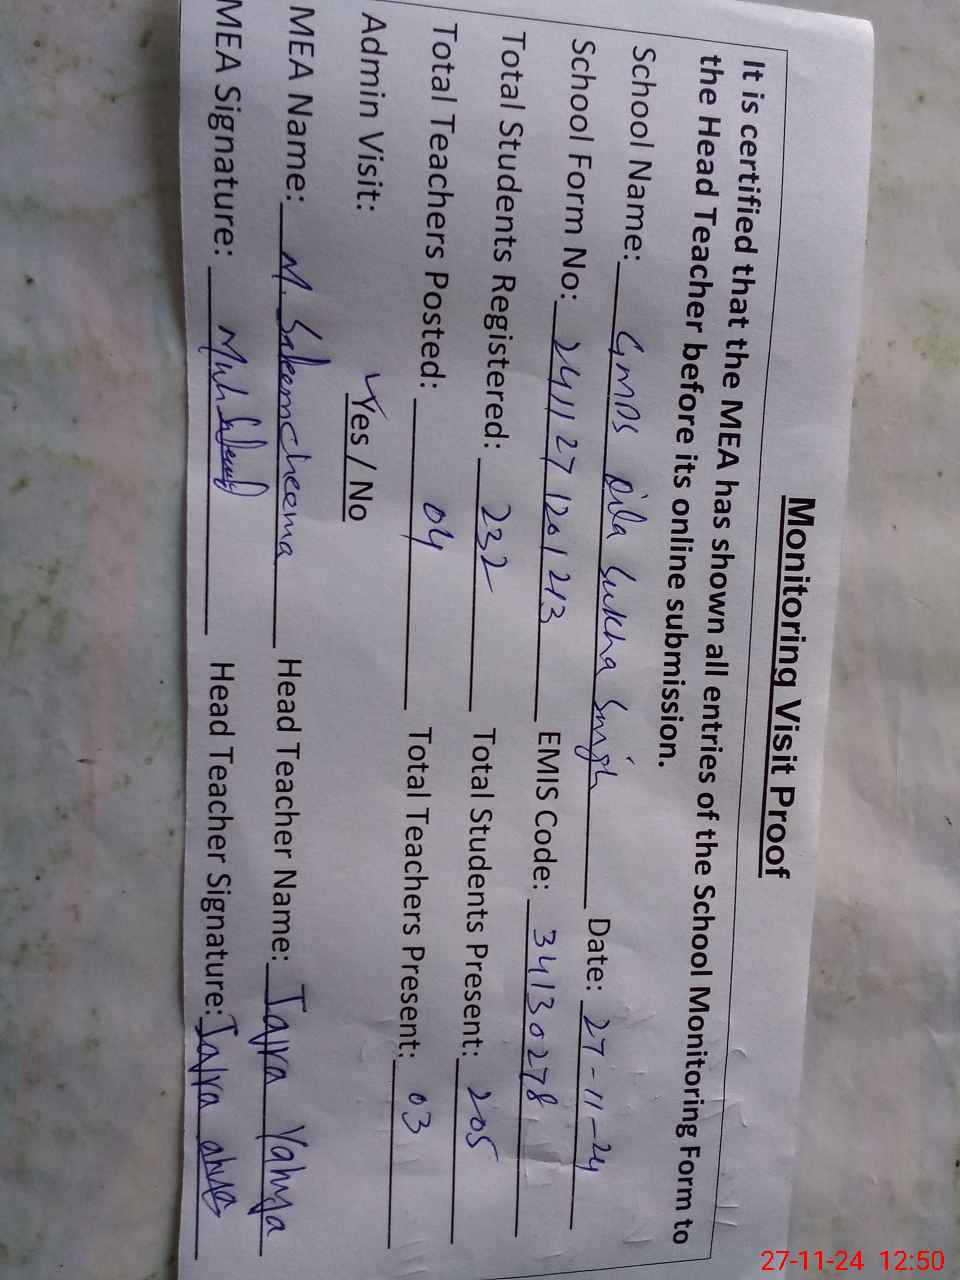 Monitoring Visit Proof
It is certified that the MEA has shown all entries of the School Monitoring Form to
the Head Teacher before its online submission.
School Name: GMPS Qila Sukha Singh Date: 27-11-24
School Form No: 2411271201213 EMIS Code: 34130278
Total Students Registered: 232 Total Students Present: 205
Total Teachers Posted: 04 Total Teachers Present: 03
Admin Visit: Yes / No
MEA Name: M. Saleem Cheema Head Teacher Name: Iqra Yahya
MEA Signature: Head Teacher Signature: Iqra
27-11-24 12:50